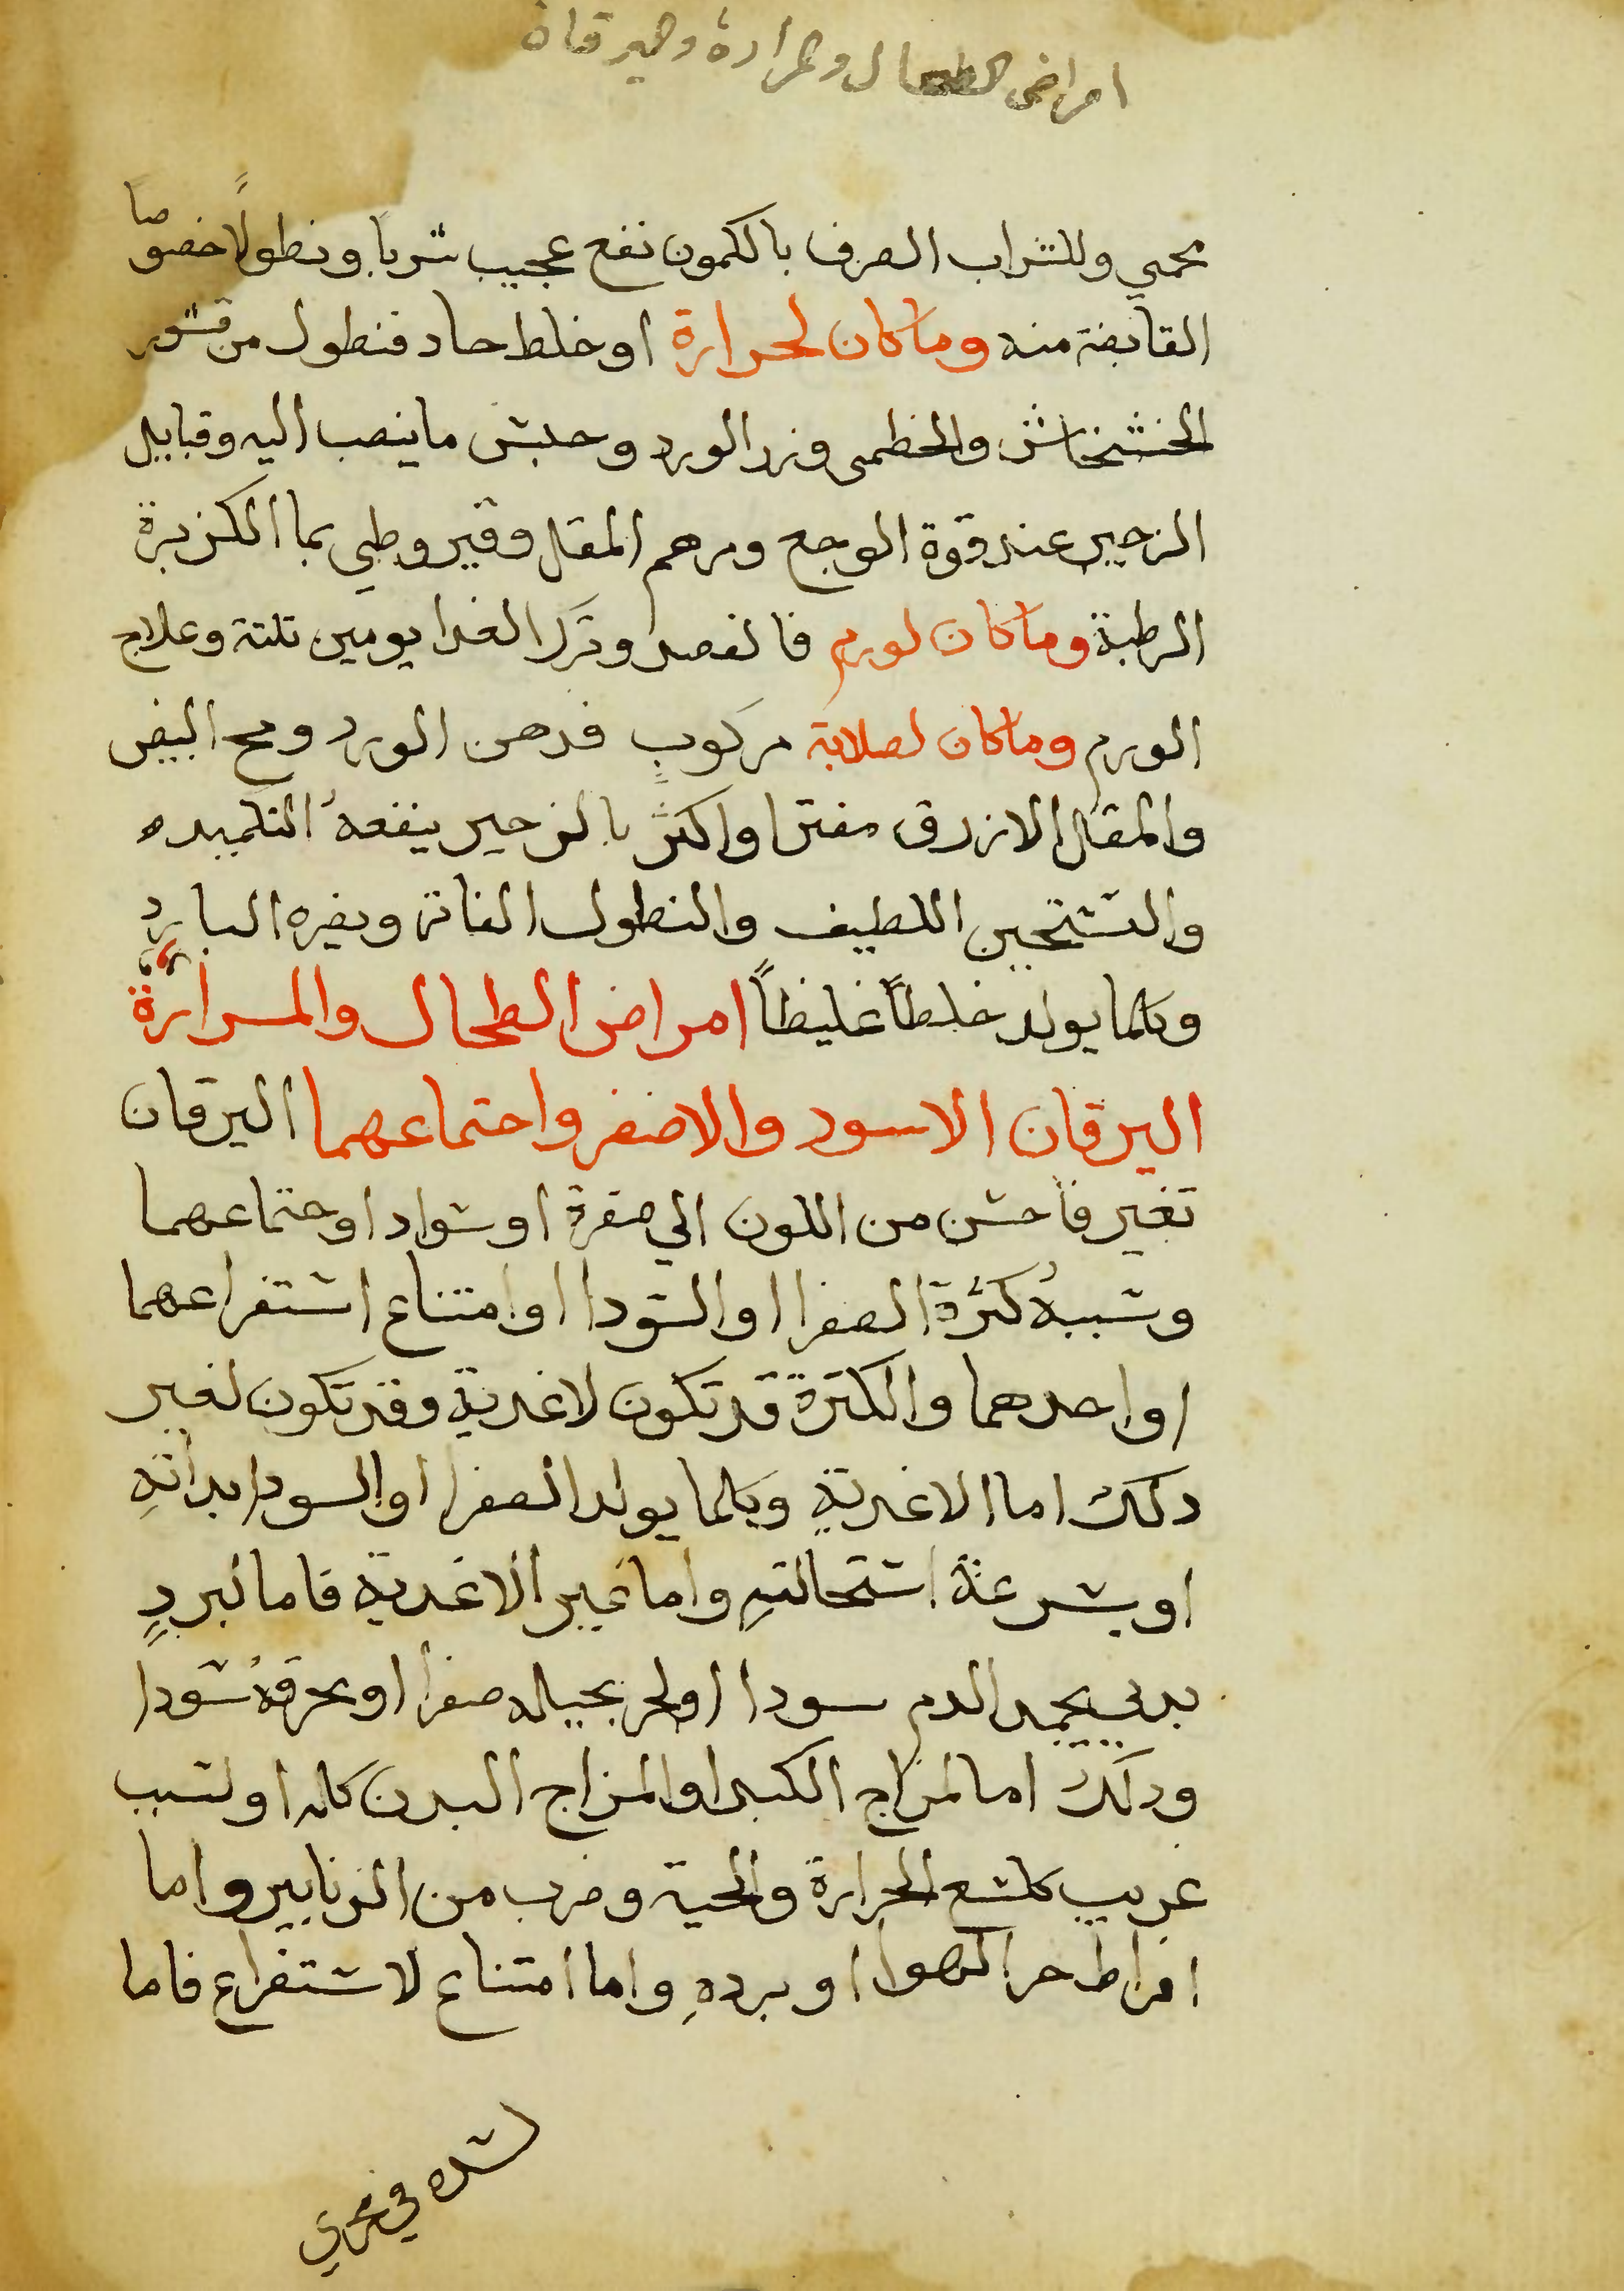 امراض الطحال والمرارة واليرقان
محمي وللشراب الصرف بالكمون نفع عجيب شربا ونطولاً خصوصا
القابضة منه وما كان لحرارة او خلط حاد فنطول من قشور
الخشخاش والخطمى وزر الورد وحبس ما ينصب اليه وقبايل
الزحير عند قوة الوجع ومرهم المقل وقيروطي بما الكزبرة
الرطبة وما كان لورم فالفصد وترك الغدا يومين ثلثة وعلاج
الورم وما كان لصلابة مركوبٍ فدهن الورد ومح البيض
والمقل الازرق مفترا واكثر بالزحير ينفعهُ التكميد
والتسخين اللطيف والنطول الفاتر ويضره البارد
وكلما يولد خلطاً غليظاً امراض الطحال والمرارة
اليرقان الاسود والاصفر واحتماعهما اليرقان
تغير فاحش من اللون الي صفرة او سواد او حتماعهما
وسببهُ كثرة الصفرا او السودا او امتناع استفراعهما
او احدهما والكثرة قد تكون لاغدية وقد تكون لغير
دلك اما الاغدية وكلما يولد الصفرا او السودا بداتهِ
او بسرعة استحالتهِ واما غير الاغدية فاما لبردٍ
بدني يجمد الدم سودا او لحر يحيله صفرا او يحرقهُ سودا
ودلك اما لمزاج الكبد او المزاج البدن كله او لسبب
غريب كلسع الجرارة والحية وضرب من الزنابير واما
افراط حر الهوا او بردهِ واما امتناع لاستفراع فاما
لسده في مجري